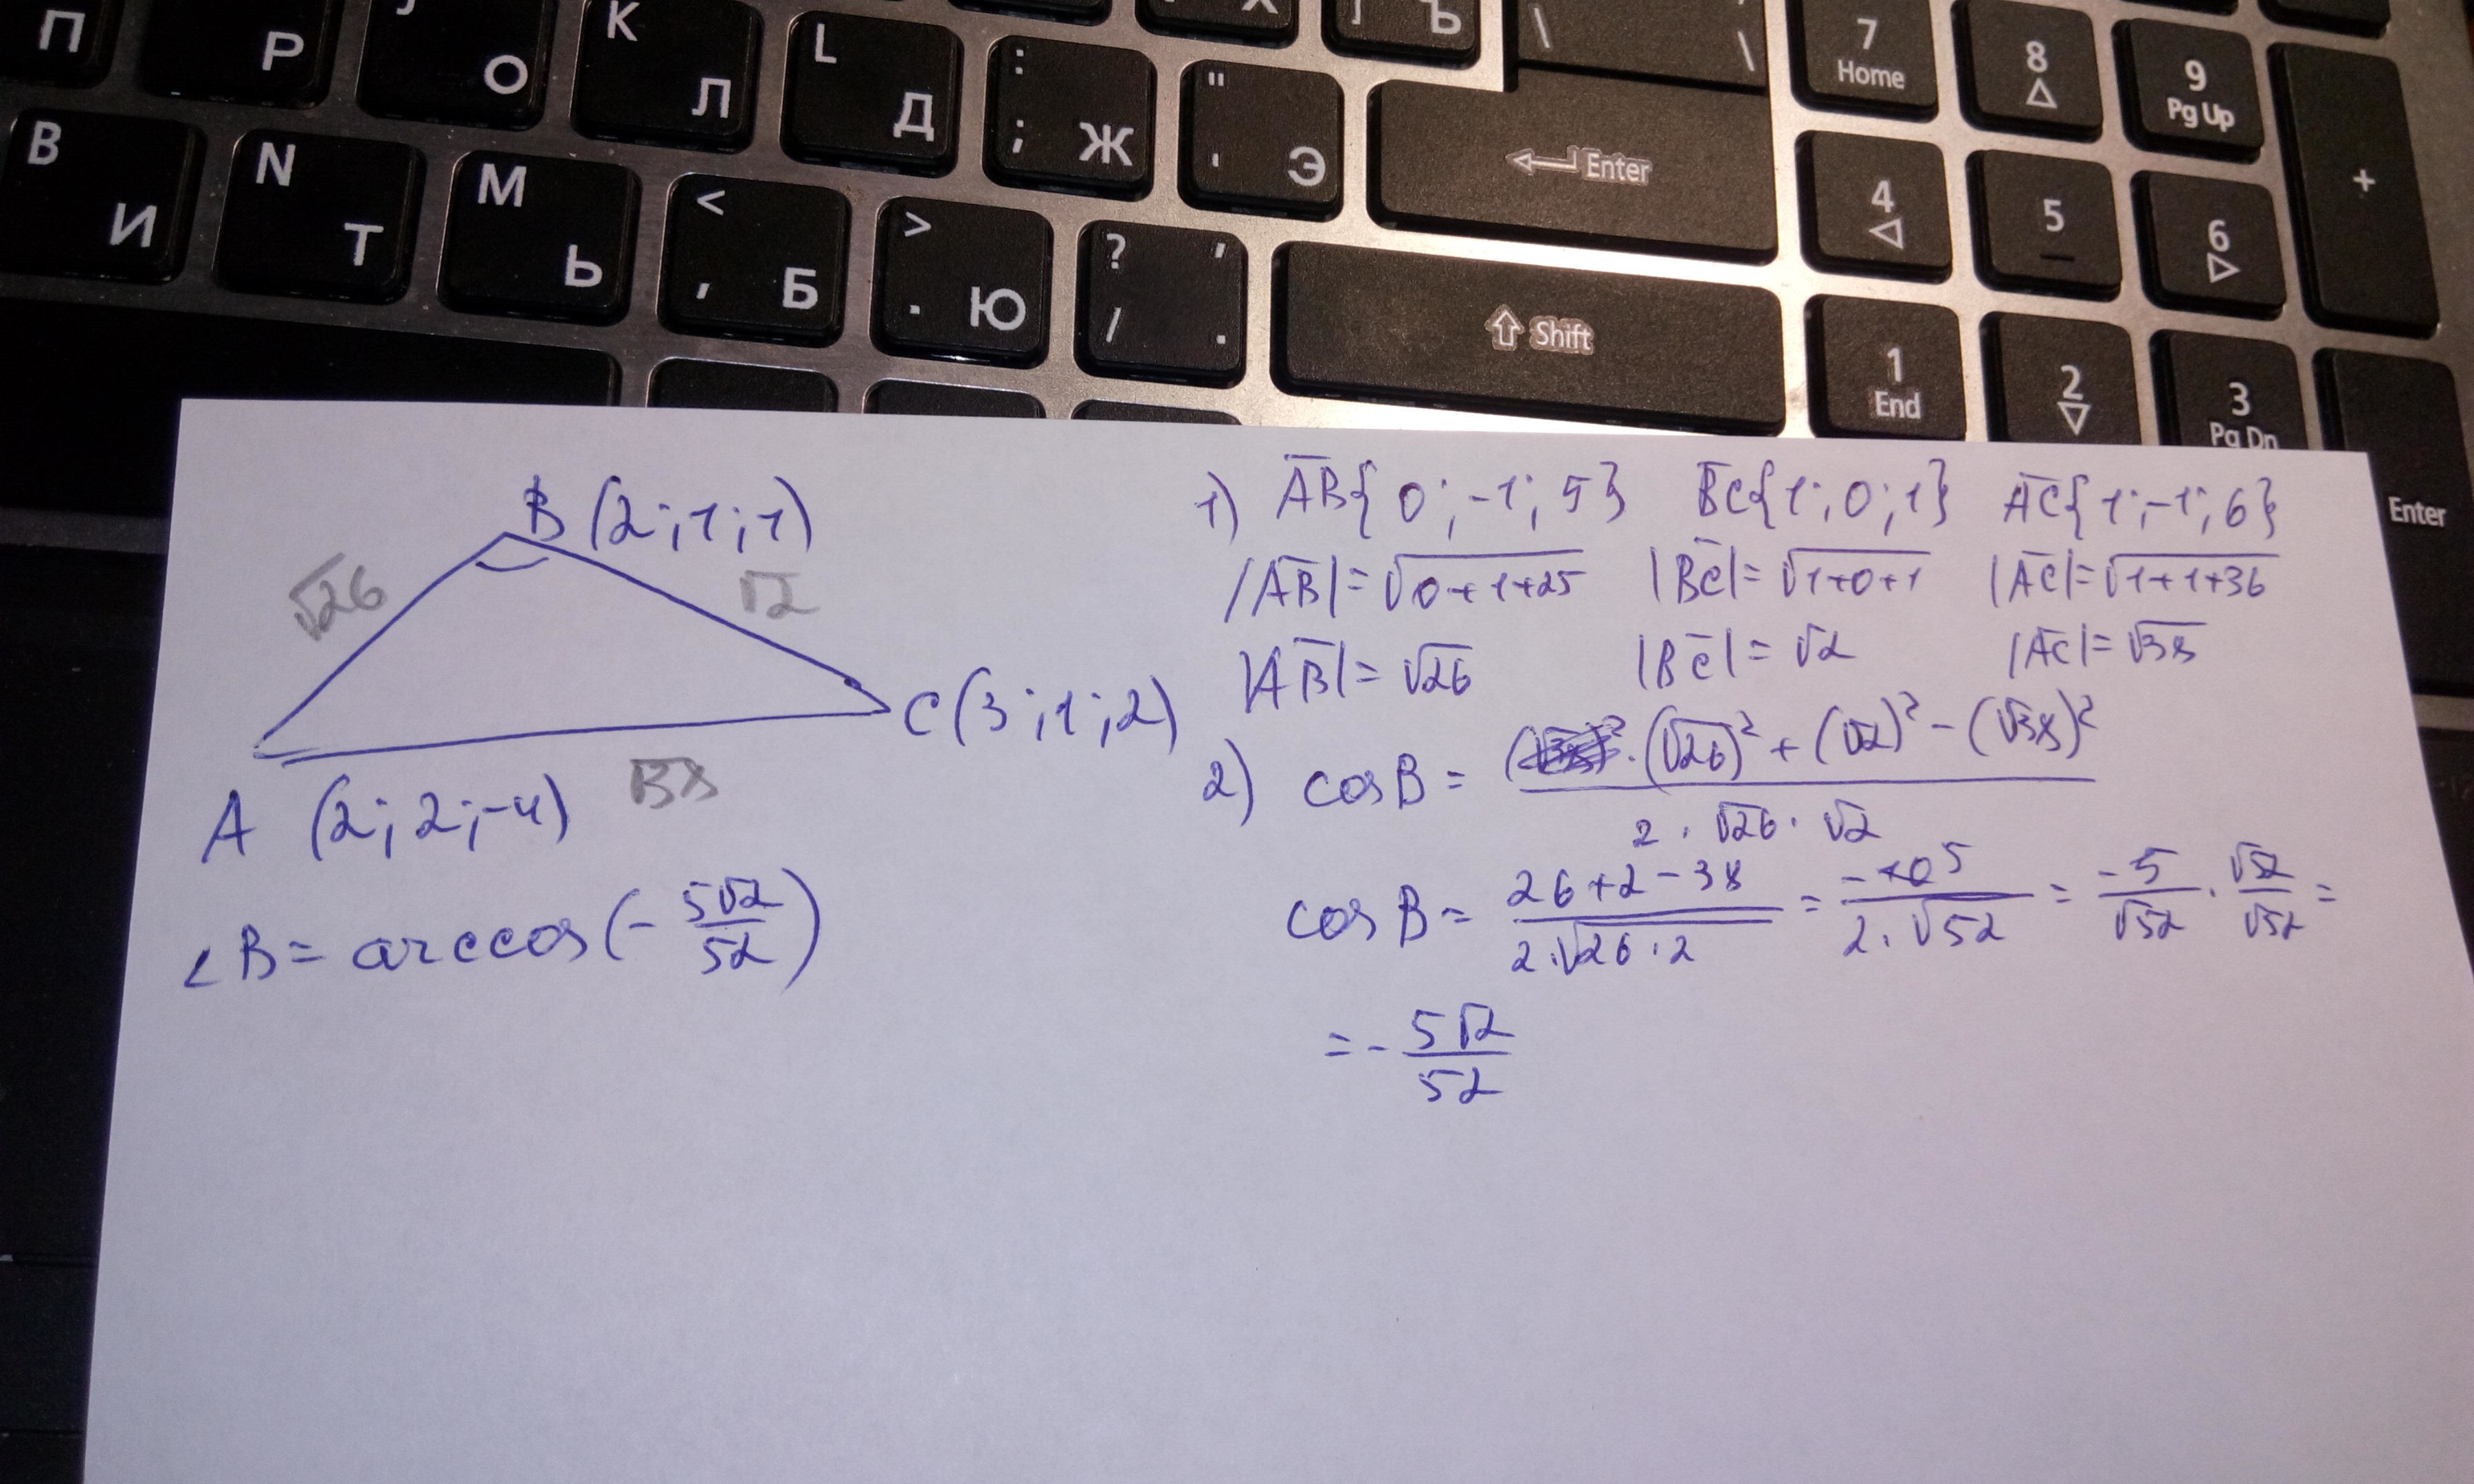 П Р О К Л L Д : ; Ж " ' Э Ъ \ \ 7 Home 8 9 Pg Up
B И N Т M Ь < , Б > . Ю ? , / . Enter 4 5 6 +
Shift 1 End 2 3 Pg Dn Enter
B (2;1;1)
√26
√2
C (3;1;2)
√38
A (2;2;-4)
∠B = arccos(- 5√2/52)
1) AB{0;-1;5} BC{1;0;1} AC{1;-1;6}
|AB|=√0+1+25 |BC|=√1+0+1 |AC|=√1+1+36
|AB|=√26 |BC|=√2 |AC|=√38
2) cos B = (√26)² + (√2)² - (√38)² / 2·√26·√2
cos B = 26+2-38 / 2·√26·2 = -10 5 / 2·√52 = -5/√52 · √52/√52 =
= - 5√2/52